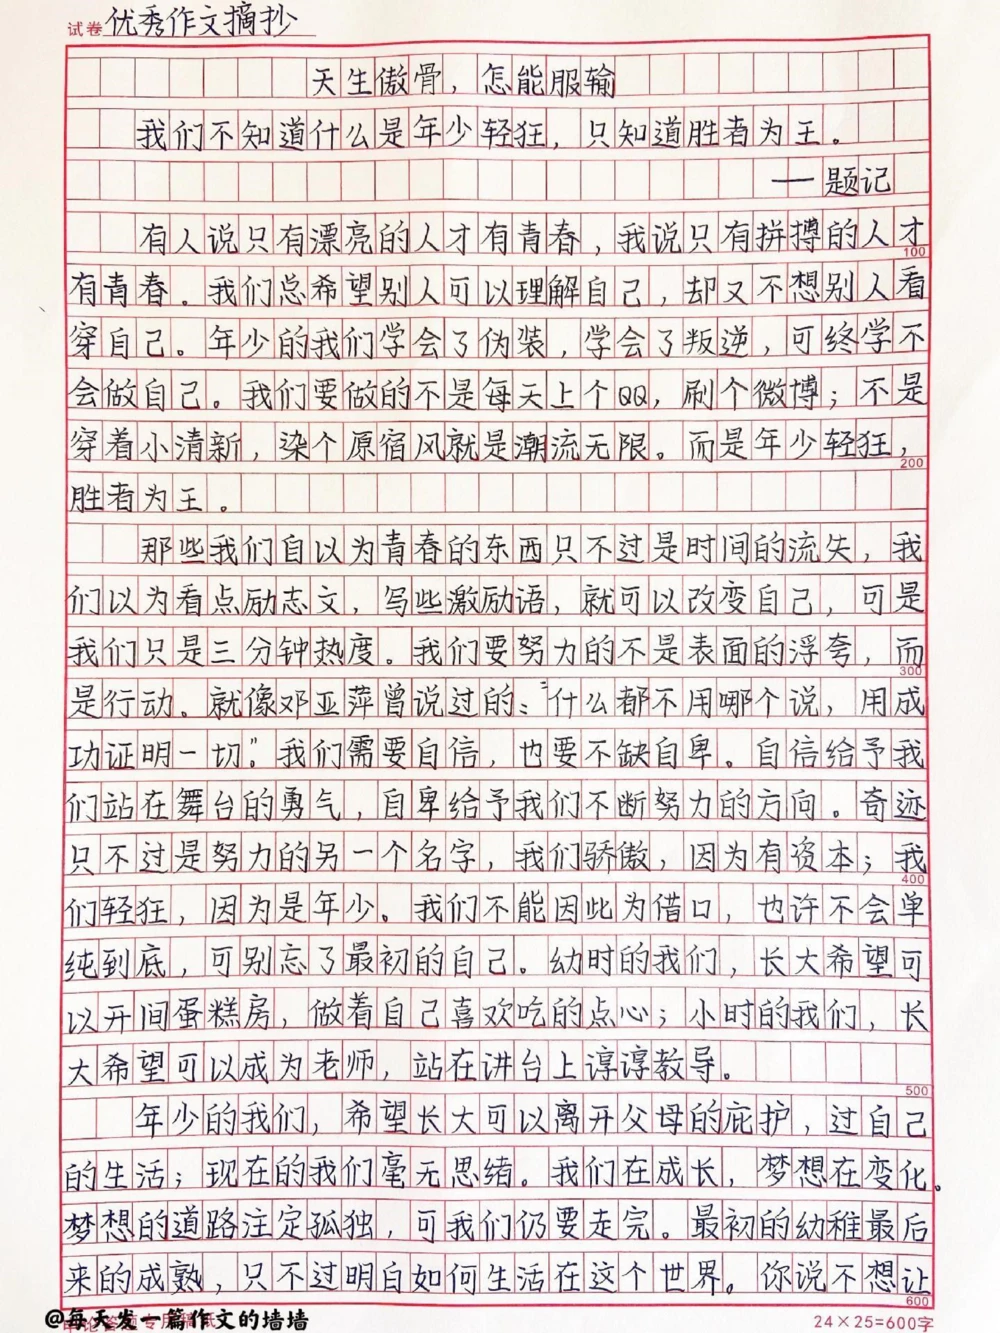 试卷 优秀作文摘抄
天生傲骨，怎能服输
我们不知道什么是年少轻狂，只知道胜者为王。
——题记
有人说只有漂亮的人才有青春，我说只有拼搏的人才
100
有青春。我们总希望别人可以理解自己，却又不想别人看
穿自己。年少的我们学会了伪装，学会了叛逆，可终学不
会做自己。我们要做的不是每天上个QQ，刷个微博；不是
穿着小清新，染个原宿风就是潮流无限。而是年少轻狂，
200
胜者为王。
那些我们自以为青春的东西只不过是时间的流失，我
们以为看点励志文，写些激励语，就可以改变自己，可是
我们只是三分钟热度。我们要努力的不是表面的浮夸，而
300
是行动。就像邓亚萍曾说过的：“什么都不用哪个说，用成
功证明一切”。我们需要自信，也要不缺自卑。自信给予我
们站在舞台的勇气，自卑给予我们不断努力的方向。奇迹
只不过是努力的另一个名字，我们骄傲，因为有资本；我
400
们轻狂，因为是年少。我们不能因此为借口，也许不会单
纯到底，可别忘了最初的自己。幼时的我们，长大希望可
以开间蛋糕房，做着自己喜欢吃的点心；小时的我们，长
大希望可以成为老师，站在讲台上谆谆教导。
500
年少的我们，希望长大可以离开父母的庇护，过自己
的生活；现在的我们毫无思绪。我们在成长，梦想在变化。
梦想的道路注定孤独，可我们仍要走完。最初的幼稚最后
来的成熟，只不过明白如何生活在这个世界。你说不想让
600
@每天发一篇作文的墙墙
24×25=600字